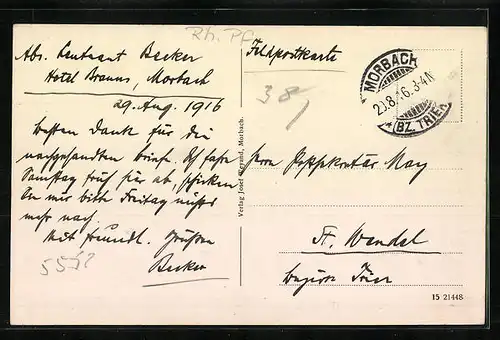 Rh. Pf.
Abs. Leutnant Becker
Hotel Brauns, Morbach
29. Aug. 1916
Besten Dank für die
nachgesandten Briefe. Ich fahre
Samstag früh hier ab, schicken
Sie mir bitte Freitag nichts
mehr nach.
Mit freundl. Grüßen
Becker
Verlag Josef Morbach.
Feldpostkarte
38
MORBACH
29.8.16.3-4N
* (BZ. TRIER)
Herrn Postsekretär May
St. Wendel
Bezirk Trier
15 21448